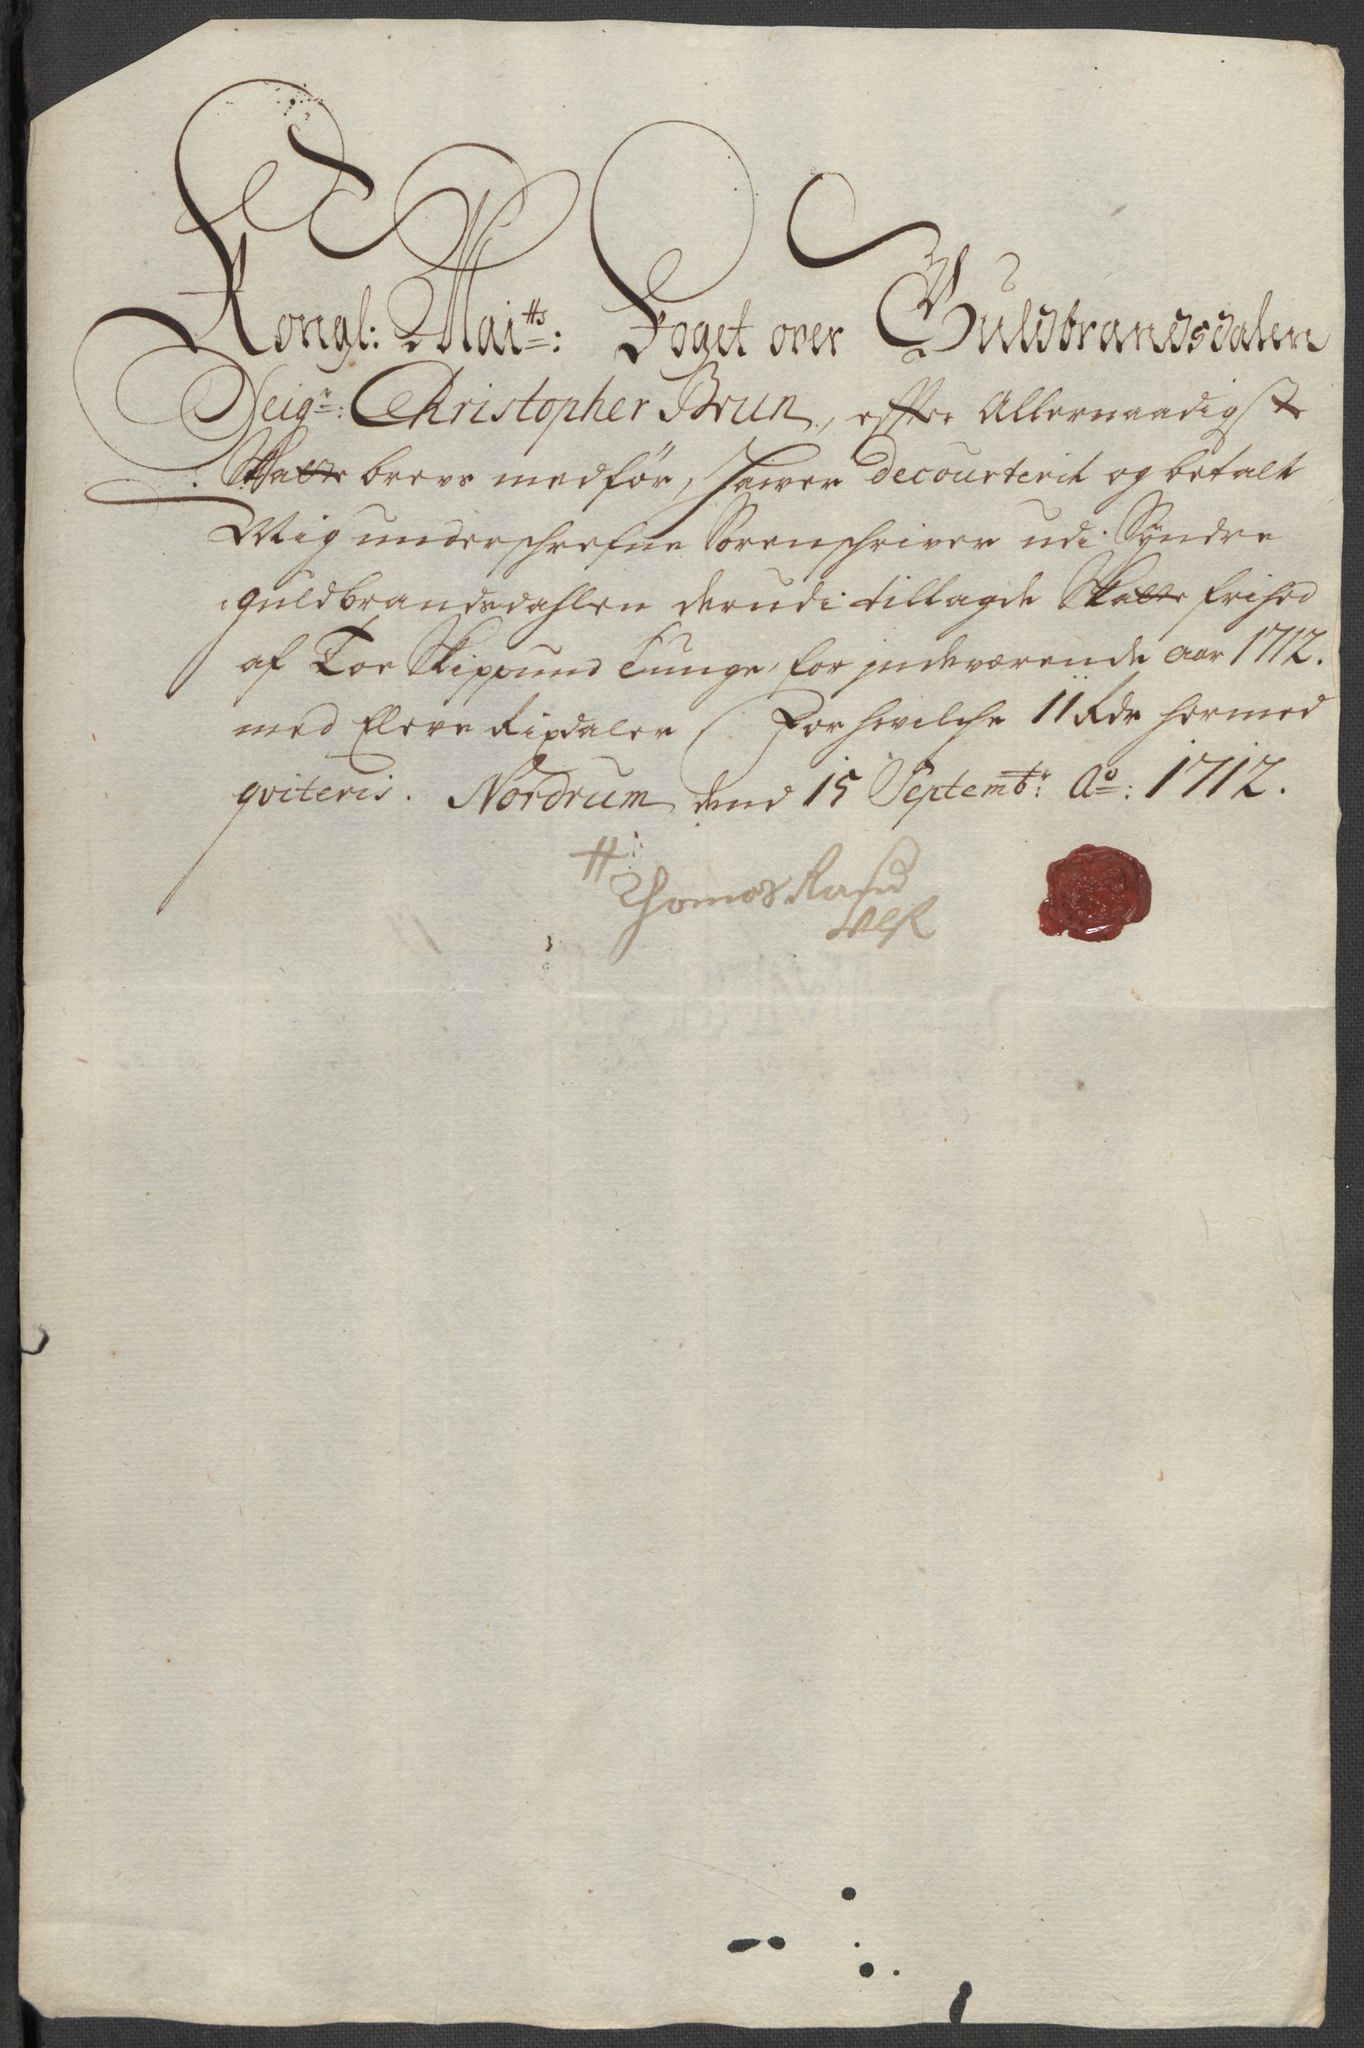 Kongl: Maitts: Foget over Guldbrandsdalen
Seigr: Christopher Brun, effter Allernaadigste
Skatte brevs medför, hawer decourterit og betalt
Mig underschrefne Sorenschriver udi Syndre
guldbrandsdahlen derudi tillagde Skatte frihed
af Toe Skippund Tunge, for indeværende aar 1712.
med Elleve Rixdaler / For hvilche 11 Rdr hermed
qviteris. Nordrum dend 15 Septembr: Ao: 1712.
Thomas